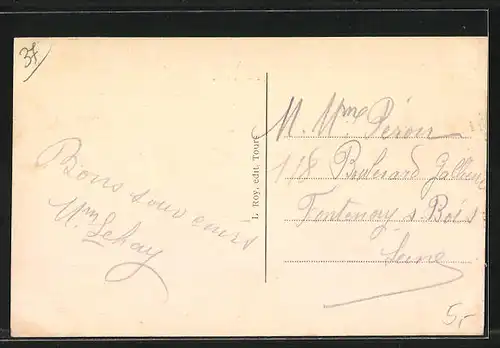 37
Bons souvenirs
Mme Lehay
L. Roy, édit. Tours
M. Mme Péron
118 Boulevard Gallieni
Fontenay s. Bois
Seine
5,-